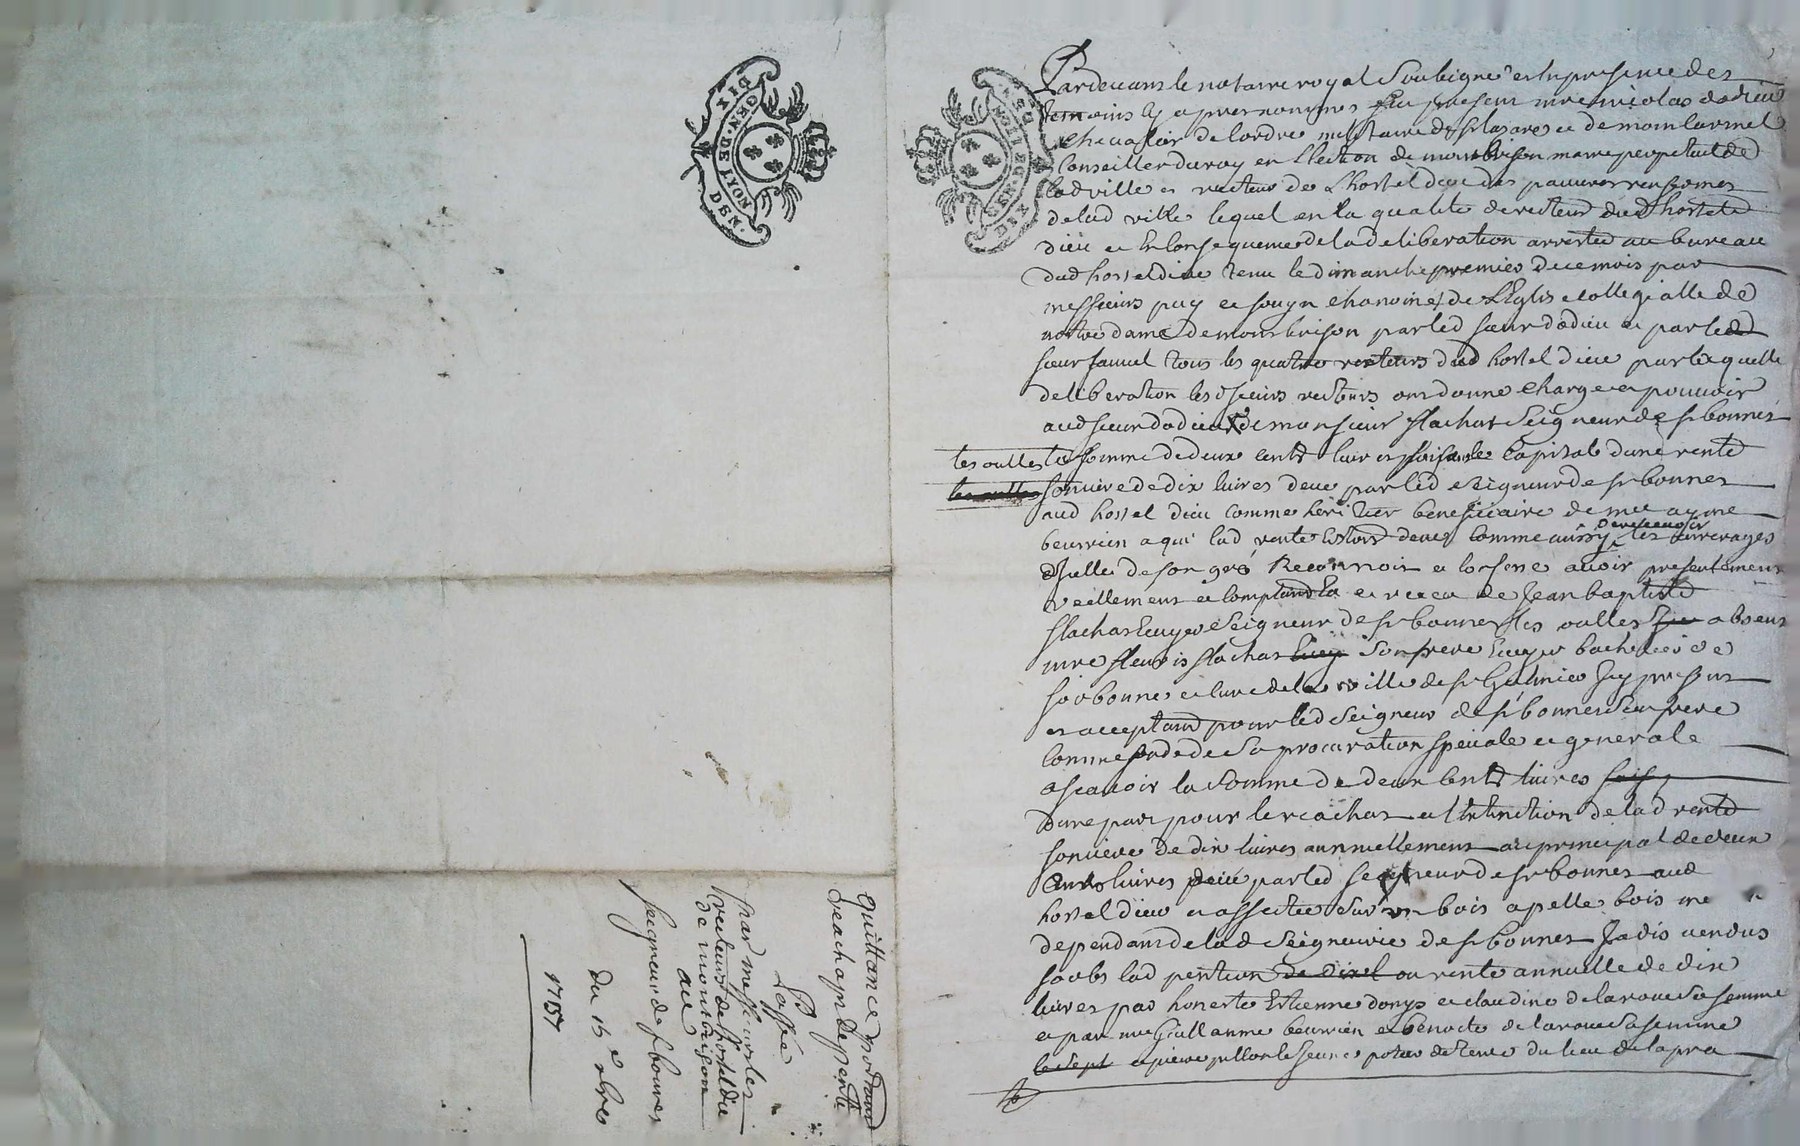 DIX
GEN. DE LYON
DEN.
quittance portant
reachapt de pente
passée
par messieurs les
recteurs de l'hostel dieu
de montbrison
au
seigneur de st bonnes
du 15e xbre
1737
Pardevant le notaire royal soubsigné et en presence des
temoins cy apres nommes fut present mre nicolas dodieu
chevalier de lordre militaire de st lazare et de mont carmel
conseiller du roy en l'election de montbrison maire perpetuel de
lad ville et recteur de l'hostel dieu des pauvres renfermes
de lad ville lequel en la qualité de recteur dud hostel
dieu et en consequence de la deliberation arrestée au bureau
dud hostel dieu tenu le dimanche premier de ce mois par
messieurs puy et souyn chanoines de l'Eglise collegialle de
nostre dame de montbrison par led sieur dodieu et par led
sieur tous les quatre recteurs dud hostel dieu par laquelle
deliberation lesd sieurs recteurs ont donné charge et pouvoir
aud sieur dodieu de monsieur flachat Seigneur de st bonnes
les oulles la somme de deux cents livres capital dune rente
les oulles fonciere de dix livres deue par led seigneur de st bonnes
aud hostel dieu comme heritier beneficiaire de mre ayme
beurrien a qui lad rente estoit deue comme aussy de recevoir les arrerages
d'jcelle de son gré Reconnoit et confesse avoir presentement
reellement et comptant eu et receu de Jean baptiste
flachat Ecuyer Seigneur de st bonnes les oulles absent
mre fleuris flachat son frere Ecuyer bachelier de
sorbonne et curé de la ville de st Galmier Jcy present
et acceptant pour led Seigneur de st bonnes son frere
comme fondé de sa procuration speciale et generale
a scavoir la somme de deux cents livres
dune part pour le reachat et extinction de lad rente
fonciere de dix livres annuellement au principal de deux
cents livres deue par led seigneur de st bonnes aud
hostel dieu et assectée sur un bois apellé bois
dependant de lad Seigneurie de st bonnes Jadis vendus
soubs lad pention ou rente annuelle de dix
livres par honeste Estienne donys et claudine delaroue sa femme
et par mre Guillaume beurrien et benoite delaroue sa femme
et pierre potier de terre du lieu de lapra